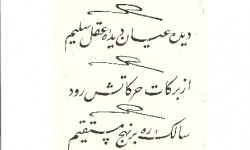 دیدن عیان دیدهٔ عقل سلیم
از برکات حرکاتش رود
سالک ره بر نهج مستقیم